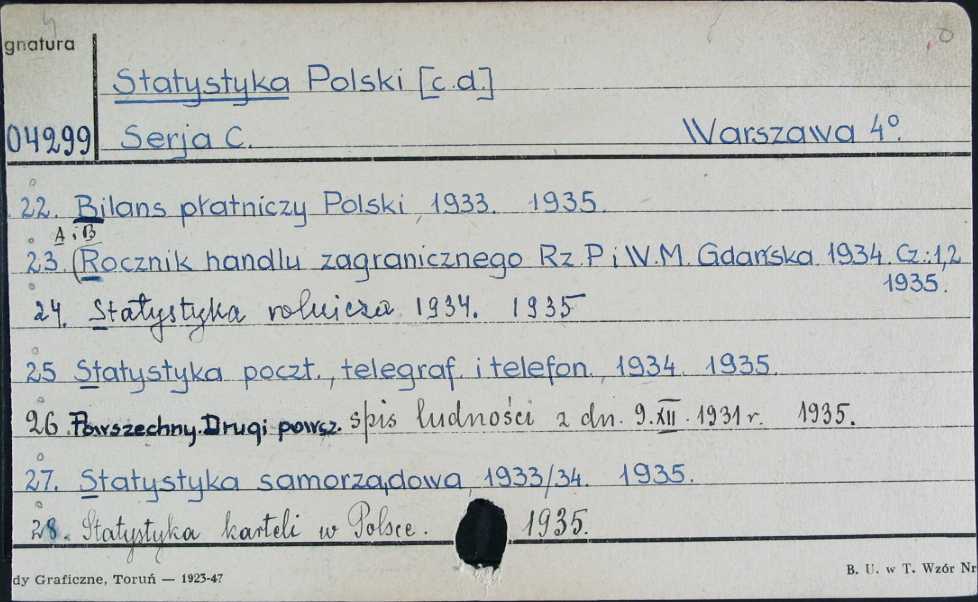 gnatura
Statystyka Polski [c.d.]
04299 Serja C. Warszawa 4°.
22. Bilans płatniczy Polski, 1933. 1935.
A i B
23. (Rocznik handlu zagranicznego Rz. P. i W. M. Gdańska 1934. Cz.: 1,2
1935.
24. Statystyka rolnicza 1934. 1935
25 Statystyka poczt., telegraf. i telefon., 1934. 1935.
26. Powszechny. Drugi powsz. spis ludności z dn. 9.XII.1931 r. 1935.
27. Statystyka samorządowa, 1933/34. 1935.
28. Statystyka karteli w Polsce. 1935.
dy Graficzne, Toruń — 1923-47
B. U. w T. Wzór Nr